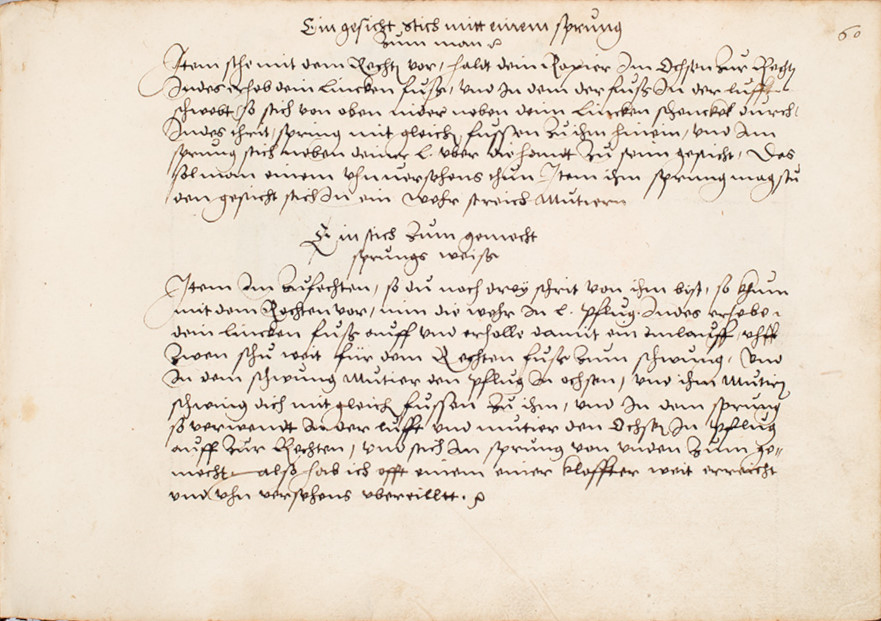 Ein gesicht stich mitt einem sprung
zum man
60
Item sthe mit dem Rechten vor, halt dein Rapier Im Ochsen zur Rechten
Indes erheb dein Lincken fuss, vnd In dem der fuss In der lufft
schwebt, so stich von oben nider neben deim Lincken schenckel durch,
Indes spring mit gleichen fussen zu ihm hinein, vnd Im
sprung stich neben deiner L. vber die handt zu seim gesicht, Das
sol man einem vhnuersehens thun Item ihm sprung magstu
den gesicht stich In ein wehr streich Mutiern
Ein stich zum gemecht
sprungs weiss
Item Im zufechten, so du noch drey schrit von ihm bist, so khum
mit dem Rechten vor, nim die wehr In L. pflug, Indes erhebe
dein lincken fuss auff vnd erholle damit ein anlauff,
zwen schu weit für dem Rechten fuss zum schwung, Vnd
In dem schwung Mutier den pflug In ochsen, vnd ihm Mutirn
schwing dich mit gleichen fussen zu ihm, vnd In dem sprung
so verwendt In der lufft vnd mutier den Ochsen In pflug
auff zur Rechten, vnd stich Im sprung von vnden zum ge=
mecht. also hab ich offt einem einer klaffter weit erreicht
vnd vhn versehens vbereillet.